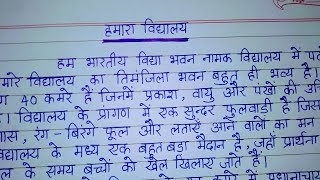 हमारा विद्यालय
हम भारतीय विद्या भवन नामक विद्यालय में
विद्यालय का तिमंजिला भवन बहुत ही भव्य है।
40 कमरे हैं जिनमें प्रकाश, वायु और पंखों की
। विद्यालय के प्रांगण में एक सुन्दर फुलवाड़ी है जिस
रंग-बिरंगे फूल और लताएँ आने वालों का मन
विद्यालय के मध्य एक बहुत बड़ा मैदान है, जहाँ प्रार्थना
के समय बच्चों को खेल खिलाए जाते हैं।